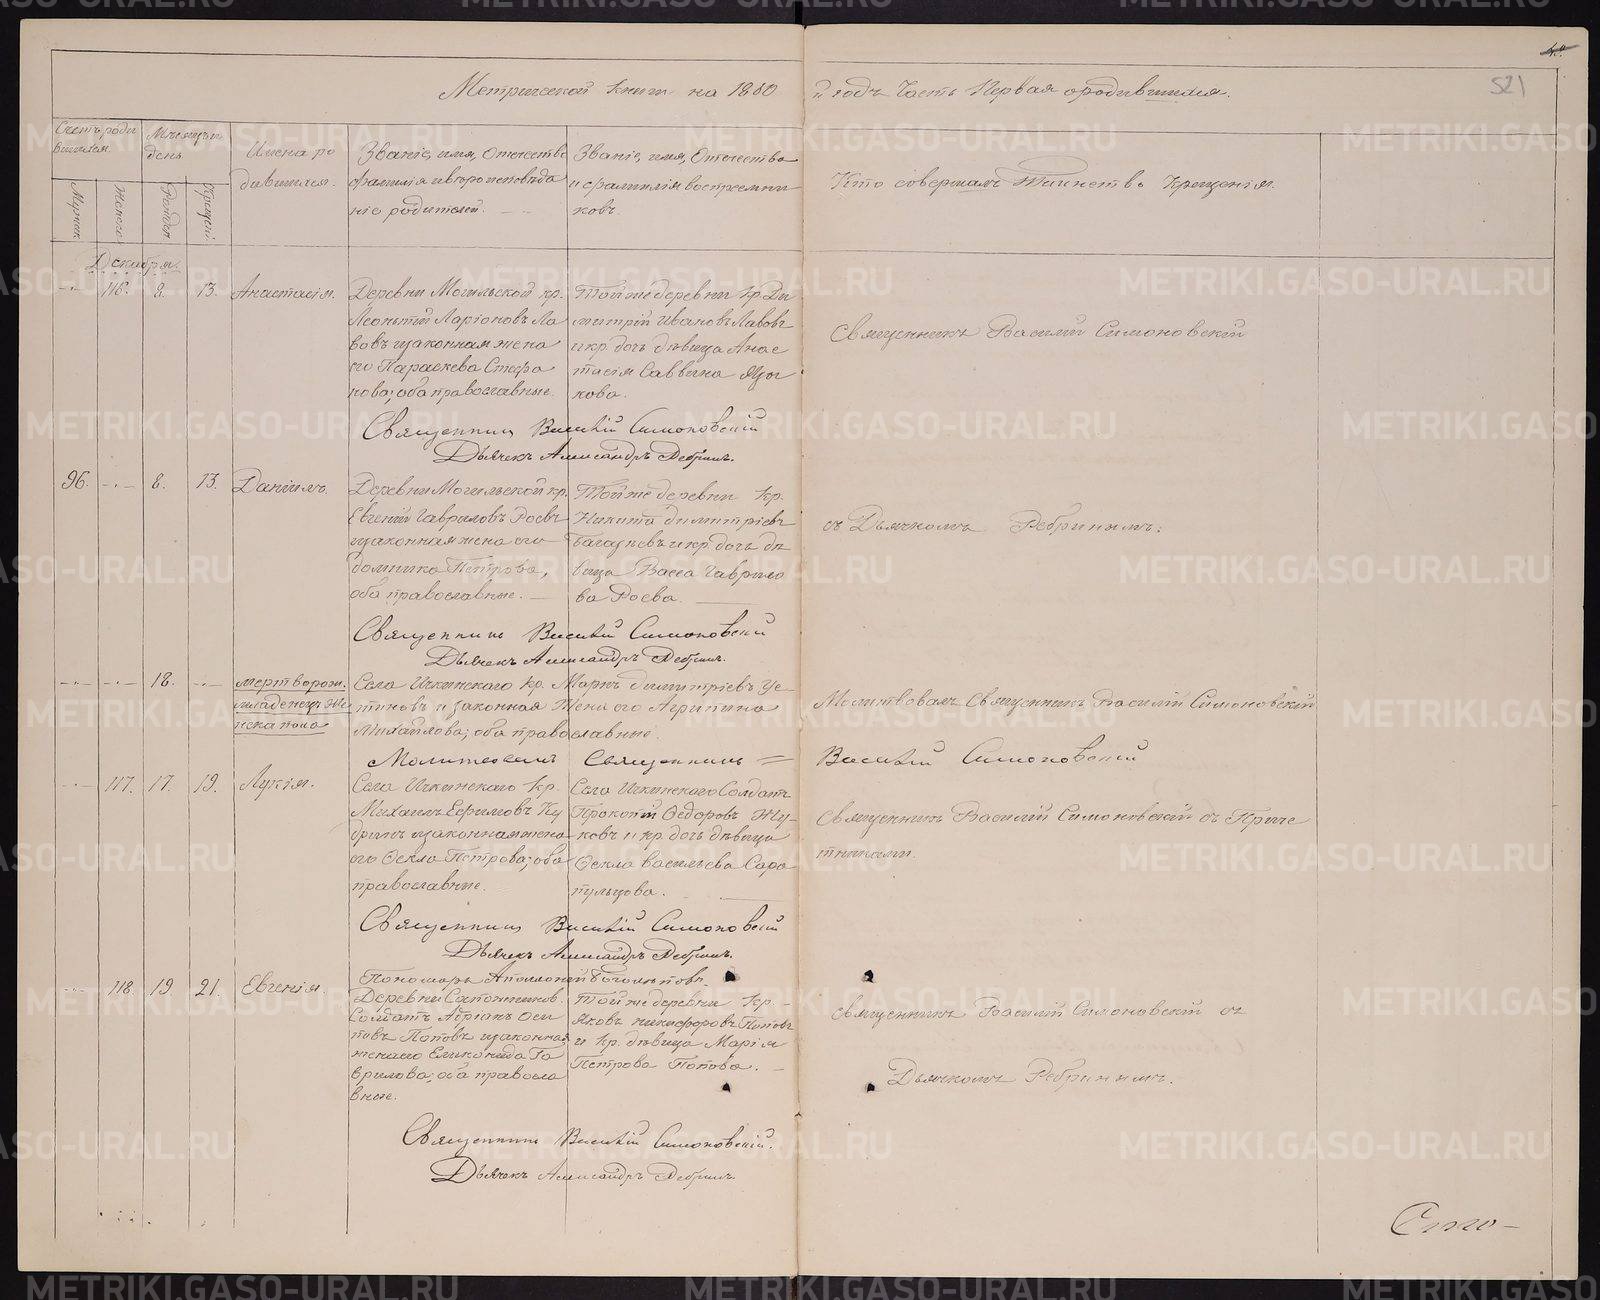 Метрической Книги на 1880 й годъ Часть Первая о родившихся.
521
Счетъ роди
вшихся.
Мужеск.
Женско
Мѣсяцъ и
день
Рожден
Крещен
Имена ро
дившихся.
Званіе, имя, Отчество
фамилія и вѣроисповѣда
ніе родителей.
Званіе, имя, Отчество
и фамилія воспреемни
ковъ.
Кто совершалъ Таинство Крещенія.
Декабря.
116. 8. 13. Анастасія.
Деревни Могильской кр.
Леонтій Ларіоновъ Ла
вовъ и законная жена
его Параскева Стефа
нова; оба православные.
Той же деревни Кр. Ди
митрій Ивановъ Лавовъ
и кр. дочь дѣвица Анас
тасія Саввина Язы
кова.
Священникъ Василій Симоновскій
Священникъ Василій Симоновскій
Дьячекъ Александръ Ребринъ.
96. 8. 13. Даніилъ.
Деревни Могильской кр.
Евгеній Гавриловъ Роевъ
и законная жена его
Домника Петрова,
оба православные.
Той же деревни Кр.
Никита Димитріевъ
и кр. дочь дѣ
вица Васса Гаврило
ва Роева.
съ Дьячкомъ Ребринымъ.
Священникъ Василій Симоновскій
Дьячекъ Александръ Ребринъ.
18. мертворож.
младенецъ Же
нска пола
Села Ичкинскаго кр. Маркъ Димитріевъ Ус
тиновъ и законная Жена его Агрипина
Михайлова; оба православные.
Молитвовалъ Священникъ Василій Симоновскій
Молитвовалъ Священникъ = Василій Симоновскій
117. 17. 19. Лукія.
Села Ичкинскаго Кр.
Михаилъ Ефимовъ Ку
дринъ и законная жена
его Ѳекла Петрова; оба
православные.
Села Ичкинскаго Солдатъ
Прокопій Ѳедоровъ Жу-
ковъ и кр. дочь дѣвица
Ѳекла Васильева Сара
пульцова.
Священникъ Василій Симоновскій съ Приче
тниками.
Священникъ Василій Симоновскій
Дьячекъ Александръ Ребринъ.
Пономарь Аполлоній Боголѣповъ.
118. 19 21. Евгенія.
Деревни Сапожников.
Солдатъ Адріанъ Оси
повъ Поповъ и законная
жена его Еликонида Га
врилова; оба правосла
вные.
Той же деревни Кр.
Яковъ Никифоровъ Поповъ
и Кр. дѣвица Марія
Петрова Попова.
Священникъ Василій Симоновскій съ
Дьячкомъ Ребринымъ.
Священникъ Василій Симоновскій.
Дьячекъ Александръ Ребринъ.
METRIKI.GASO-URAL.RU